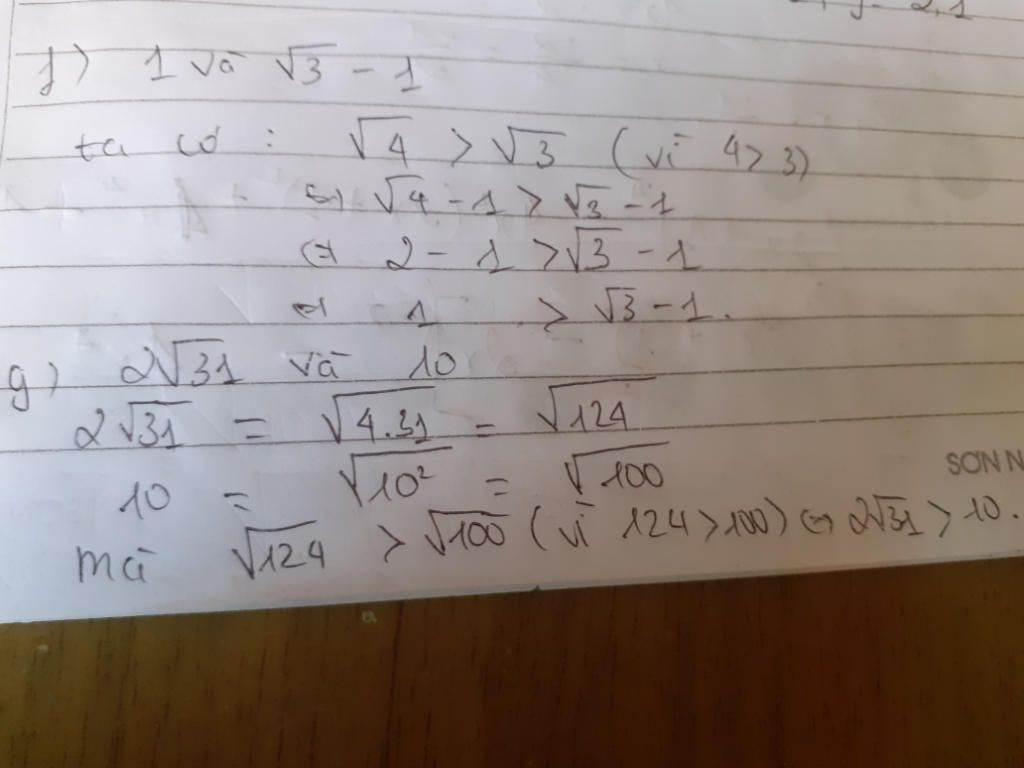 f) 1 và √3 - 1
ta có : √4 > √3 ( vì 4 > 3)
⇔ √4 - 1 > √3 - 1
⇔ 2 - 1 > √3 - 1
⇔ 1 > √3 - 1.
g) 2√31 và 10
2√31 = √4.31 = √124
10 = √10² = √100
SƠN N
mà √124 > √100 ( vì 124 > 100) ⇔ 2√31 > 10.